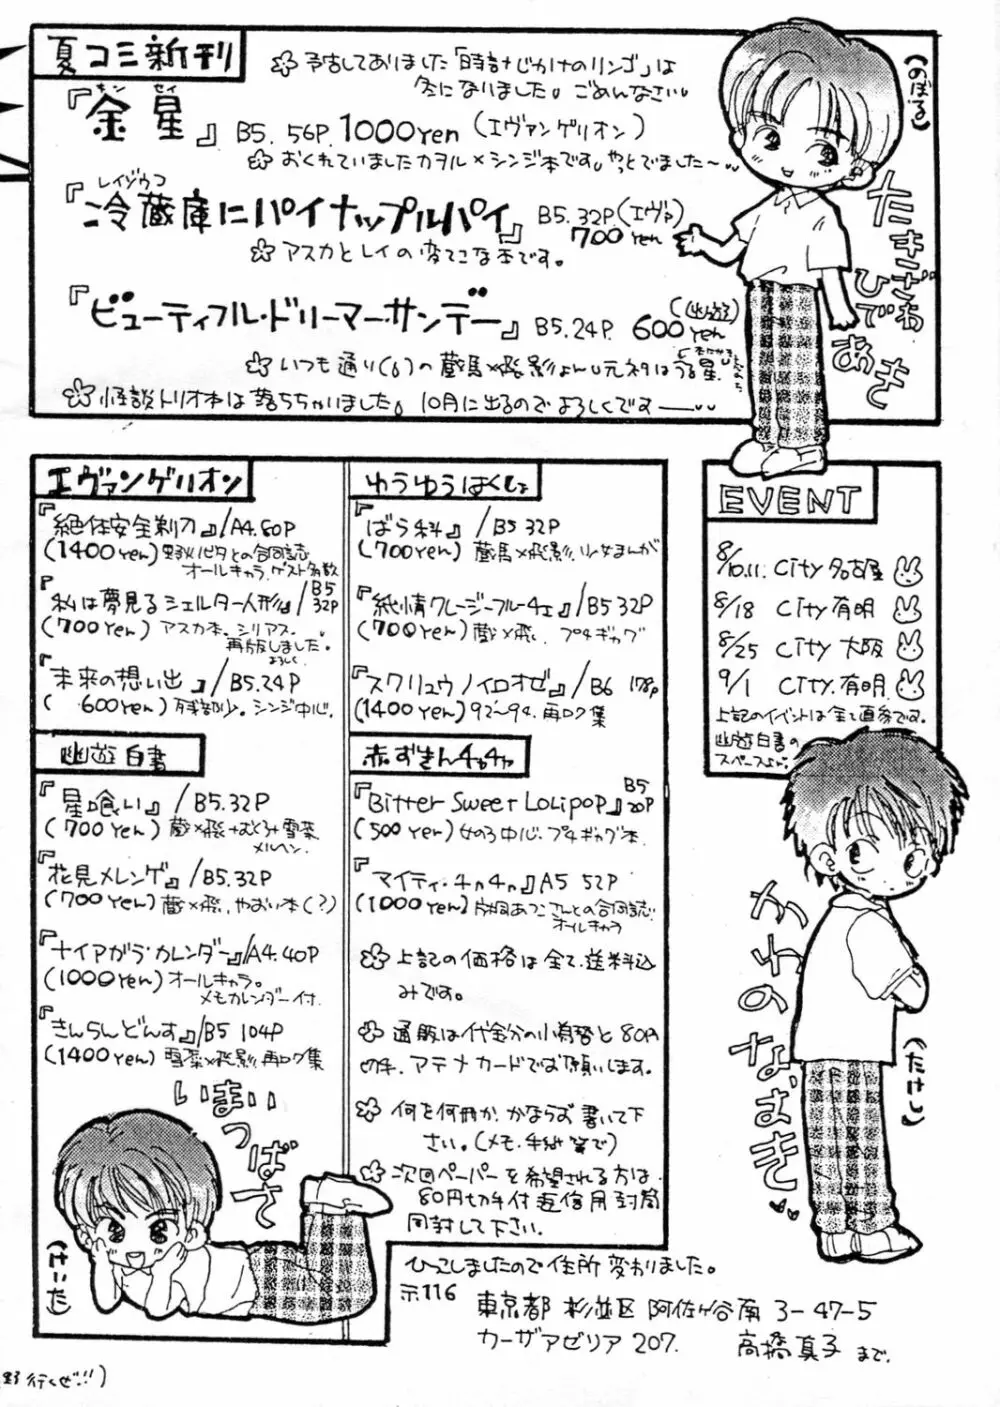 夏コミ新刊
☆予告してありました「時計じかけのリンゴ」は
冬になりました。ごめんなさい。
キン セイ
『金星』B5. 56P. 1000yen (エヴァンゲリオン)
☆おくれていましたカヲル×シンジ本です。やっとでました〜
レイゾウコ
『冷蔵庫にパイナップルパイ』B5. 32P. (エヴァ)
700yen
☆アスカとレイの変てこな本です。
『ビューティフル・ドリーマー・サンデー』B5. 24P. 600yen (幽遊)
☆いつも通り(6)の蔵馬×飛影 元ネタはうる星
☆怪談トリオ本は落ちちゃいました。10月に出るのでよろしくです
(のぼる)
たきざわ
ひであき
エヴァンゲリオン
『絶体安全剃刀』/A4. 60P
(1400yen) との合同誌
オールキャラ. ゲスト多数
『私は夢見るシェルター人形』/B5 32P
(700yen) アスカ本. シリアス.
再版しました。
よろしく
『未来の想い出』/B5. 24P
(600yen) 残部少。シンジ中心.
幽遊白書
『星喰い』/B5. 32P
(700yen) 蔵×飛+むくろ+雪菜
メルヘン.
『花見メレンゲ』/B5. 32P
(700yen) 蔵×飛. やおい本(?)
『ナイアガラ・カレンダー』/A4. 40P
(1000yen) オールキャラ。
メモカレンダー付.
『きんらんどんす』/B5 104P
(1400yen) 雪菜×飛影 再ログ集
いまい
つばさ
(けいた)
ゆうゆうはくしょ
『ばら科』/B5 32P
(700yen) 蔵馬×飛影. 少女まんが
『純情クレージーフルーチェ』/B5 32P
(700yen) 蔵×飛. プチギャグ
『スクリュウノイロオゼ』/B6 178P
(1400yen) 92〜94. 再ログ集
赤ずきんチャチャ
『Bitter Sweet Lolipop』B5 20P
(500yen) 女の子中心. プチギャグ本.
『マイティ・4n4n』A5 52P
(1000yen) 片桐あつこさんとの合同誌.
オールキャラ
☆上記の価格は全て、送料込
みです。
☆通販は代金分の小為替と80円
切手、アテナカードでお願いします。
☆何を何冊か、かならず書いて下
さい。(メモ・手紙等で)
☆次回ペーパーを希望される方は、
80円切手付返信用封筒
同封して下さい。
EVENT
8/10.11. City 名古屋
8/18 City 有明
8/25 City 大阪
9/1 City. 有明.
上記のイベントは全て直参です。
幽遊白書の
スペースよん.
かわの
なおき
(たけし)
ひっこしましたので住所変わりました。
〒116
東京都 杉並区 阿佐ヶ谷南 3-47-5
カーザアゼリア 207. 高橋真子まで.
行くぜ!!)